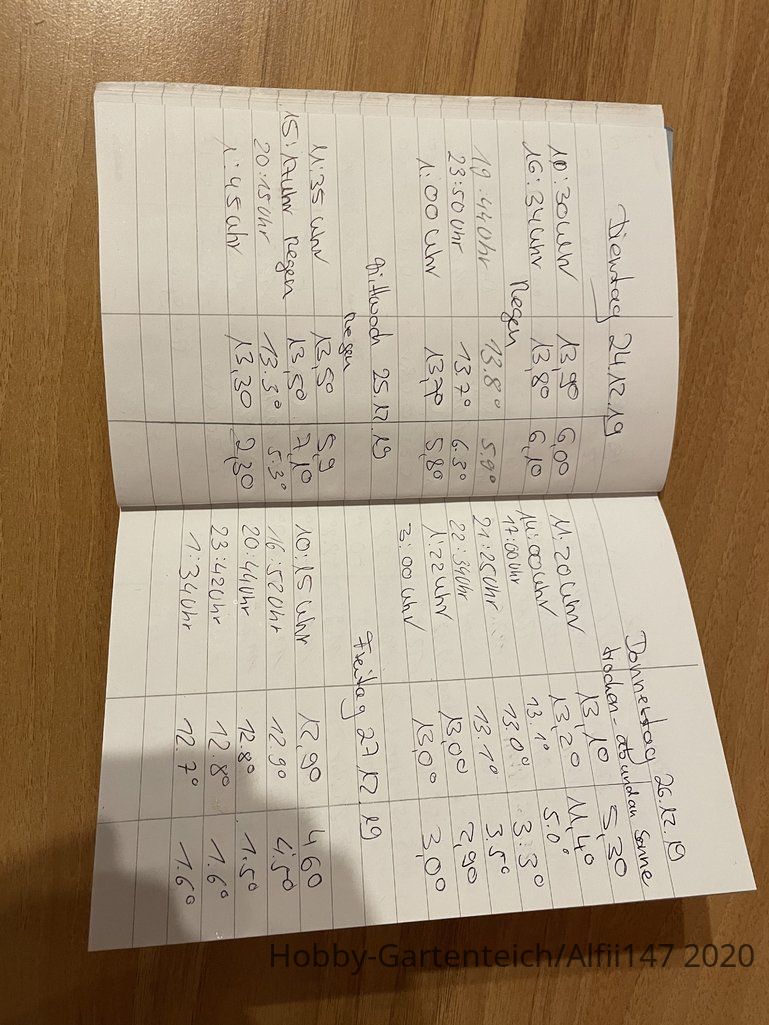 Dienstag 24.12.19
10:30 Uhr 13,90 6,00
16:34 Uhr 13,80 6,10
Regen
19:44 Uhr 13.8° 5.9°
23:50 Uhr 13.7° 6.3°
1:00 Uhr 13,70 5,80
Mittwoch 25.12.19
Regen
11:35 Uhr 13,50 5,9
15:17 Uhr Regen 13,50 7,10
20:15 Uhr 13.3° 5.3°
1:45 Uhr 13,30 2,30
Donnerstag 26.12.19
trocken - ab und an Sonne
11:20 Uhr 13,10 5,30
14:00 Uhr 13,20 11,40
17:00 Uhr 13.1° 5.0°
21:25 Uhr 13.0° 3:3°
22:34 Uhr 13.1° 3.5°
1:22 Uhr 13,00 2,90
3:00 Uhr 13,00 3,00
Freitag 27.12.19
10:15 Uhr 12,90 4,60
16:52 Uhr 12.9° 4.5°
20:44 Uhr 12.8° 1.5°
23:42 Uhr 12.8° 1.6°
1:34 Uhr 12.7° 1.6°
Hobby-Gartenteich/Alfii147 2020